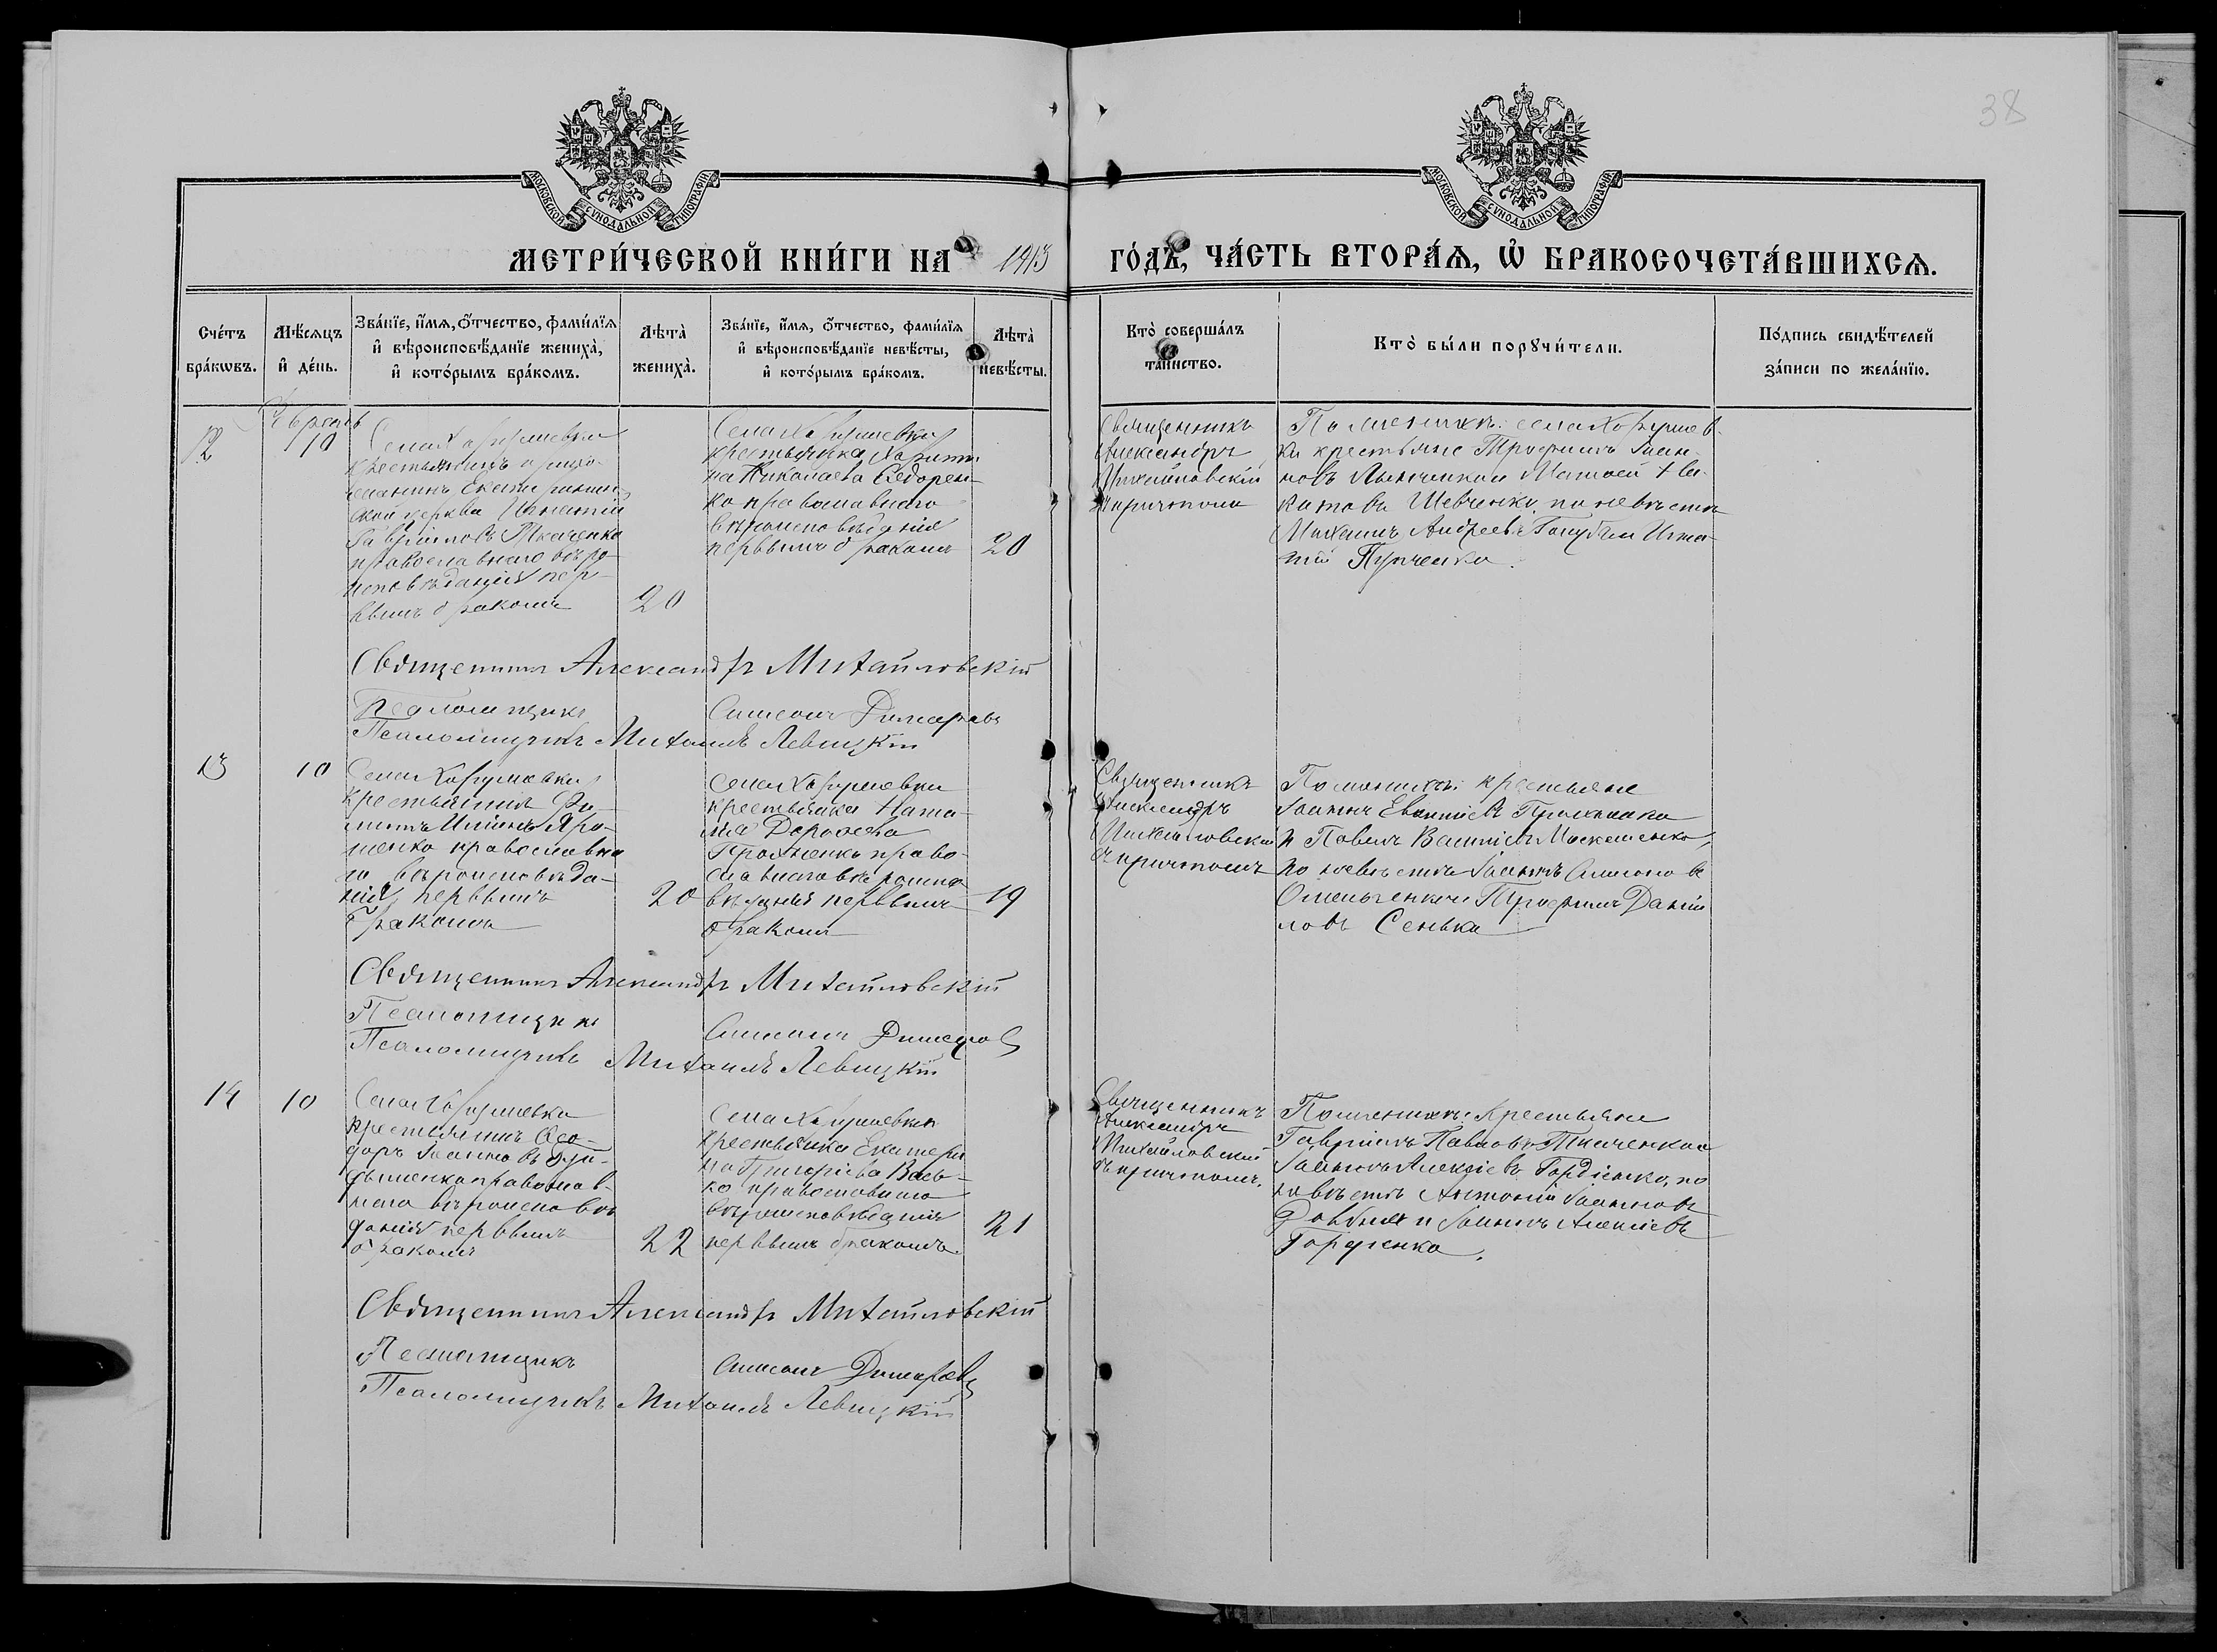 38
МОСКОВСКОЙ СѴНОДАЛЬНОЙ ТИПОГРАФІИ
МОСКОВСКОЙ СѴНОДАЛЬНОЙ ТИПОГРАФІИ
МЕТРИ́ЧЕСКОЙ КНИ́ГИ НА 1913 ГО́ДЪ, ЧА́СТЬ ВТОРА́Ѧ, Ѡ҆ БРАКОСОЧЕТА́ВШИХСѦ.
Сче́тъ бра́кѡвъ.
Мѣ́сяцъ и҆ де́нь.
Зва́нїе, и҆́мя, ѻ҆́тчество, фами́лїя
и҆ вѣроисповѣ́данїе жениха̀,
и҆ кото́рымъ бра́комъ.
Лѣта̀ жениха̀.
Зва́нїе, и҆́мя, ѻ҆́тчество, фами́лїя
и҆ вѣроисповѣ́данїе невѣ́сты,
и҆ кото́рымъ бра́комъ.
Лѣта̀ невѣ́сты.
Кто̀ соверша́лъ та́инство.
Кто̀ бы́ли порꙋчи́тели.
По́дпись свидѣ́телей за́писи по жела́нїю.
Февраль
12
10
Села Хоружевки
крестьянинъ прихо-
жанинъ Екатеринин-
ской церкви Игнатій
Гавріиловъ Ткаченко
православнаго вѣро-
исповѣданія пер-
вымъ бракомъ
20
Села Хоружевки
крестьянка Харити-
на Николаева Сидорен-
ко православнаго
вѣроисповѣданія
первымъ бракомъ
20
Священникъ
Александръ
Михайловскій
съ причтомъ
По женихѣ: села Хоружев-
ки крестьяне Трофимъ Іоан-
новъ и Матѳей
Шевченко, по невѣстѣ
Михаилъ Андреевъ Голубъ и Игна-
тій
Священникъ Александръ Михайловскій
Псаломщикъ Симеонъ Димаровъ
Псаломщикъ Михаилъ Левицкій
13
10
Села Хоружевки
крестьянинъ Фи-
липпъ Яро-
шенко православна-
го вѣроисповѣда-
нія, первымъ
бракомъ
20
Села Хоружевки
крестьянка Ната-
лія Дороѳеева
право-
славнаго вѣроиспо-
вѣданія первымъ
бракомъ
19
Священникъ
Александръ
Михайловскій
съ причтомъ
По женихѣ: крестьяне
Іоаннъ
и Павелъ Москаленко,
по невѣстѣ Іоаннъ Симеоновъ
Омельченко и Трофимъ Даніи-
ловъ Сенька
Священникъ Александръ Михайловскій
Псаломщикъ Симеонъ Димаровъ
Псаломщикъ Михаилъ Левицкій
14
10
Села Хоружевки
крестьянинъ Ѳео-
доръ Іоанновъ
православ-
наго вѣроисповѣ-
данія первымъ
бракомъ
22
Села Хоружевки
крестьянка Екатери-
на Григоріева Вась-
ко православнаго
вѣроисповѣданія
первымъ бракомъ
21
Священникъ
Александръ
Михайловскій
съ причтомъ.
По женихѣ: крестьяне
Гавріилъ Павловъ Ткаченко и
Іоаннъ Алексіевъ Гордіенко, по
невѣстѣ Антоній Іоанновъ
Довбня и Іоаннъ Алексіевъ
Гордіенко.
Священникъ Александръ Михайловскій
Псаломщикъ Симеонъ Димаровъ
Псаломщикъ Михаилъ Левицкій